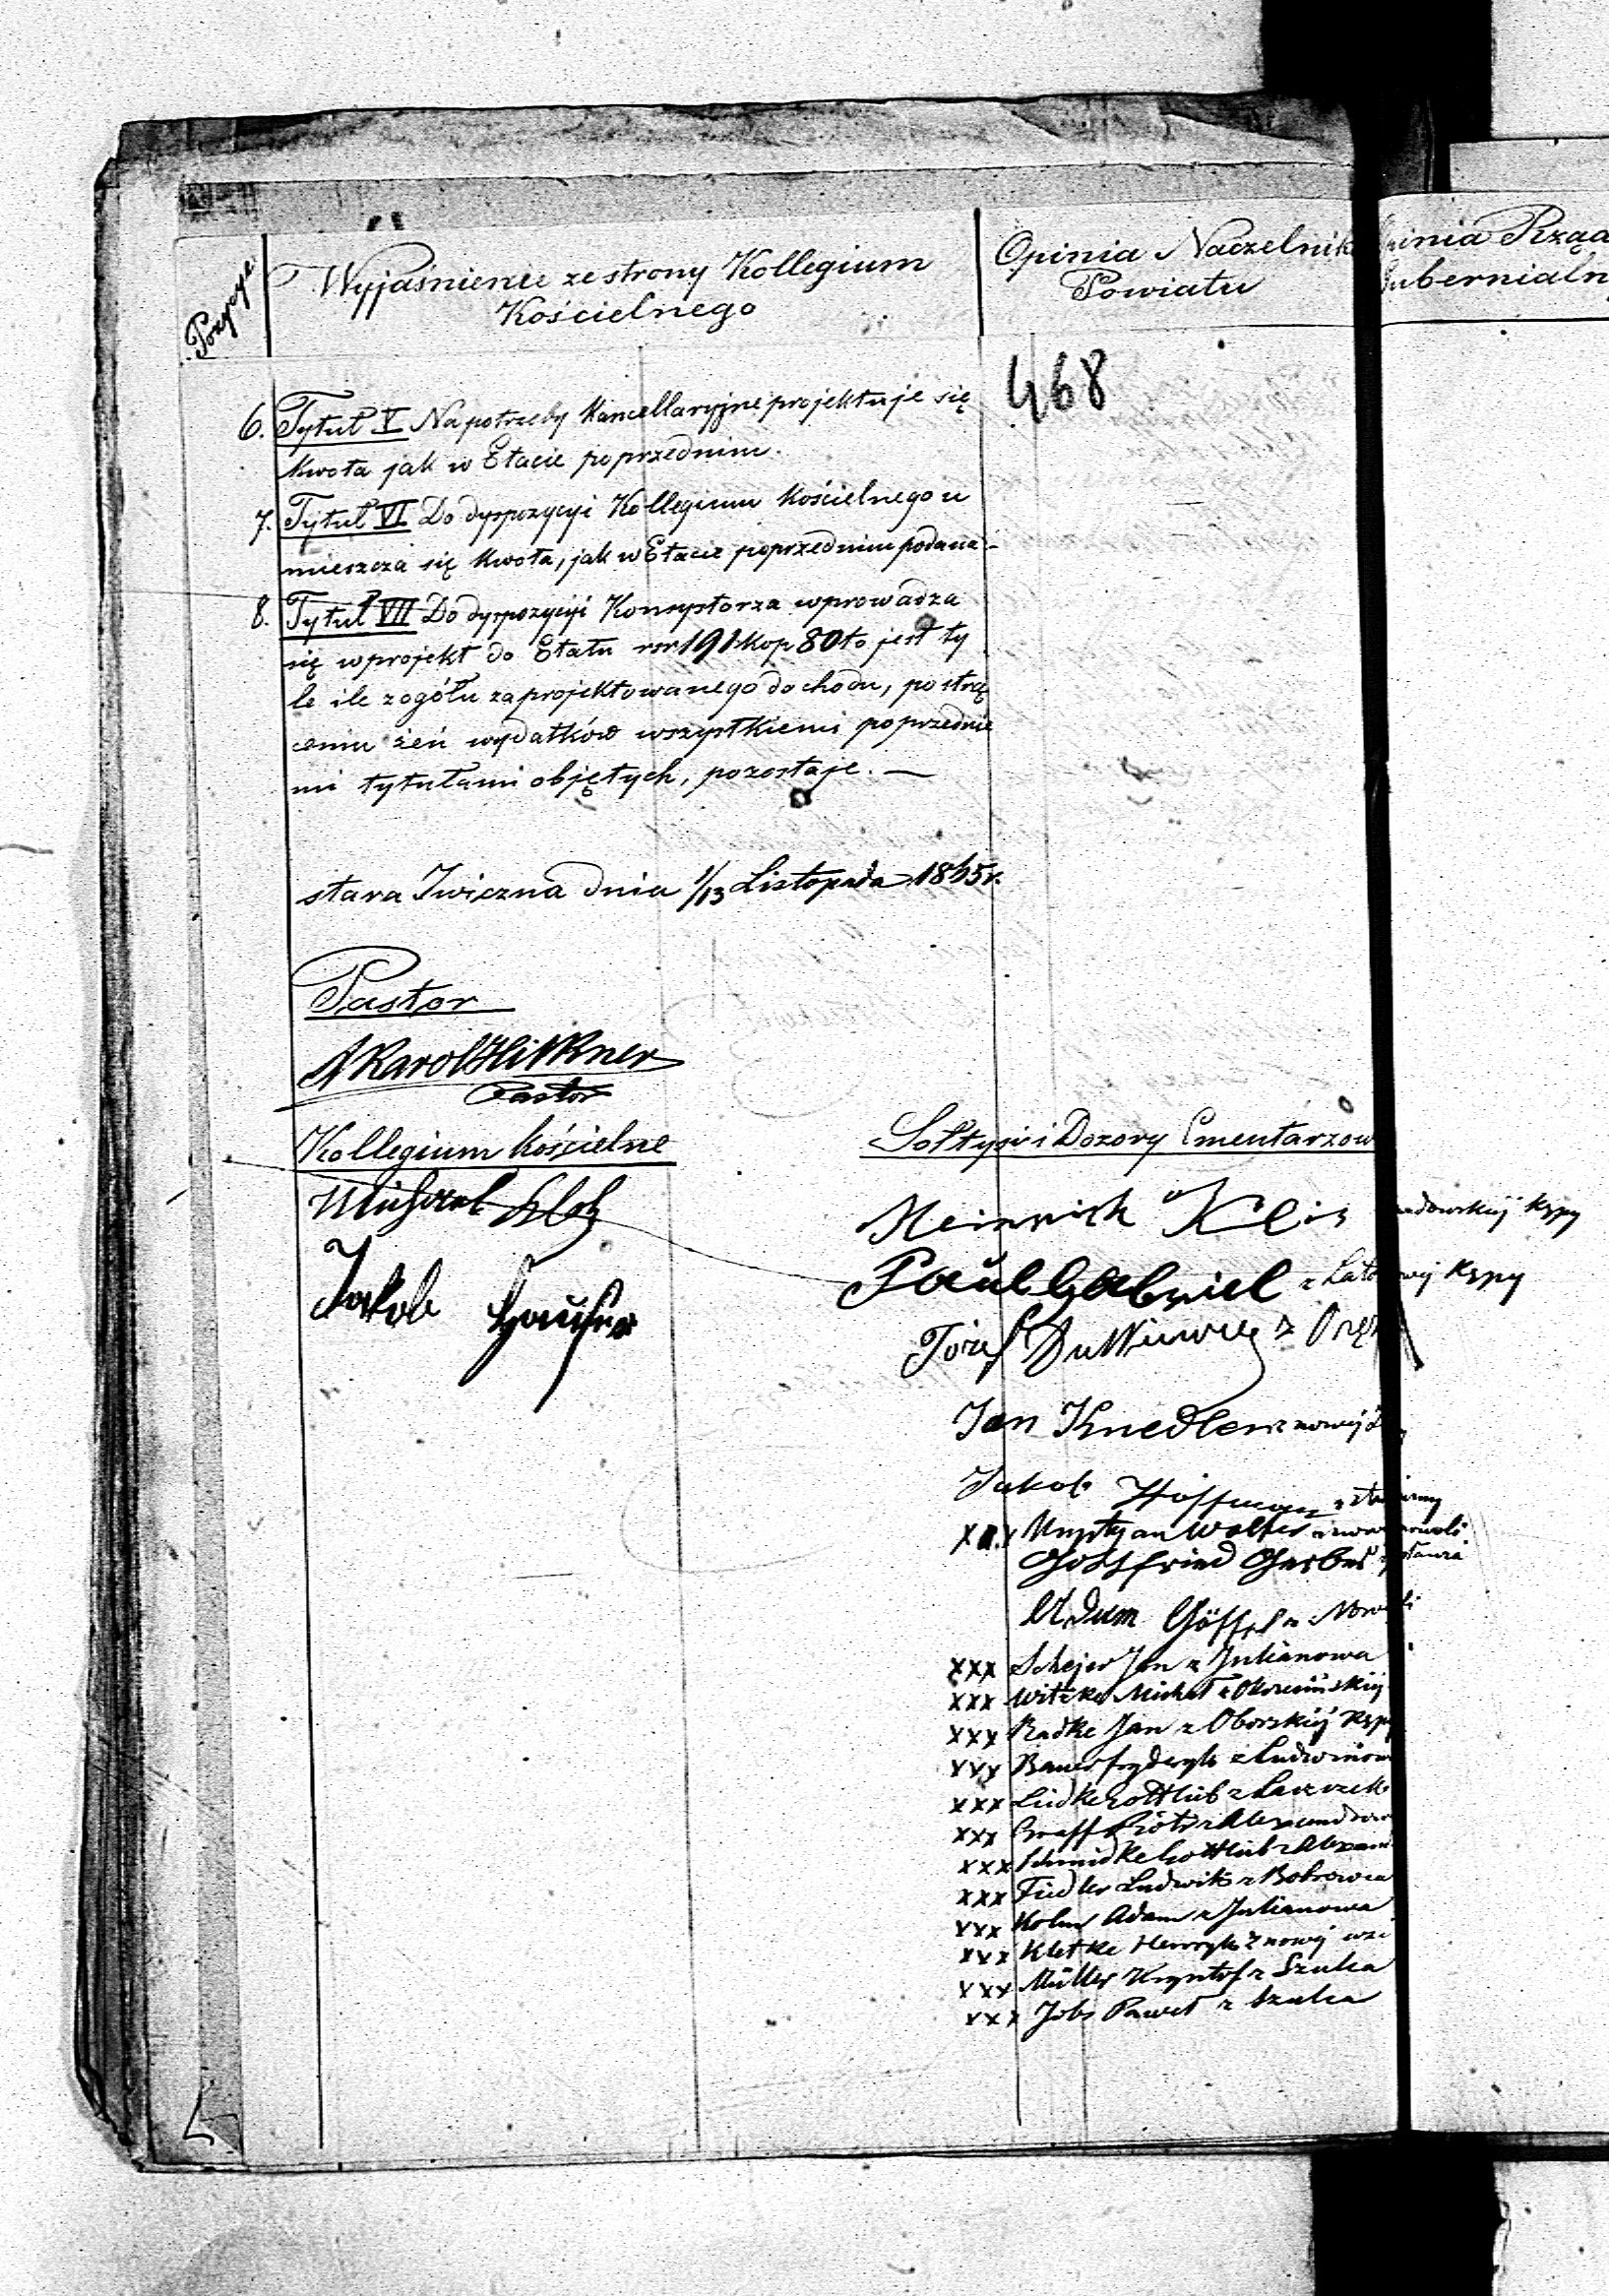 Pozycye.
Wyjaśnienie ze strony Kollegium
Kościelnego
Opinia Naczelnik
Powiatu
inia Rząd
ubernialn
468
6. Tytuł V Na potrzeby Kancellaryjne projektuje się
Kwota jak w Etacie poprzednim.
7. Tytuł VI Do dyspozycyi Kollegium Kościelnego u
mieszcza się Kwota, jak w Etacie poprzednim podana.-
8. Tytuł VII Do dyspozycyi Konsystorza wprowadza
się w projekt do Etatu rsr 191 kop 80 to jest ty
le ile z ogółu zaprojektowanego dochodu, po strą
ceniu zeń wydatków wszystkiemi poprzednie
mi tytułami objętych, pozostaje. —
stara Iwiczna dnia 1/13 Listopada 1865 r.
Pastor
Karol
Pastor
Kollegium Kościelne
Michael
Jakob
Sołtysi i Dozory Cmentarzow
Heinrich Kępy
Paul Gabriel z Kępy
Józef Dutkiewicz z
Jan Knedler z nowej
Jakob Hoffman z
x x x Krystyan Walter
Gottfried Gerber
Adam
xxx Schejer Jan z Julianowa
xxx Witzke Michał z
xxx Radke Jan z Oborskiej Kępy
xxx Bauer fryderyk z Ludwinow
xxx Liedke Gottlieb z
xxx Graff Piotr z
xxx Schmidke Gottlieb z
xxx Fiedler Ludwik z Bobrowca
xxx Adam z Julianowa
xxx Kletke Henryk z nowej wsi
xxx Müller Krysztof z
xxx Jobs Paweł z